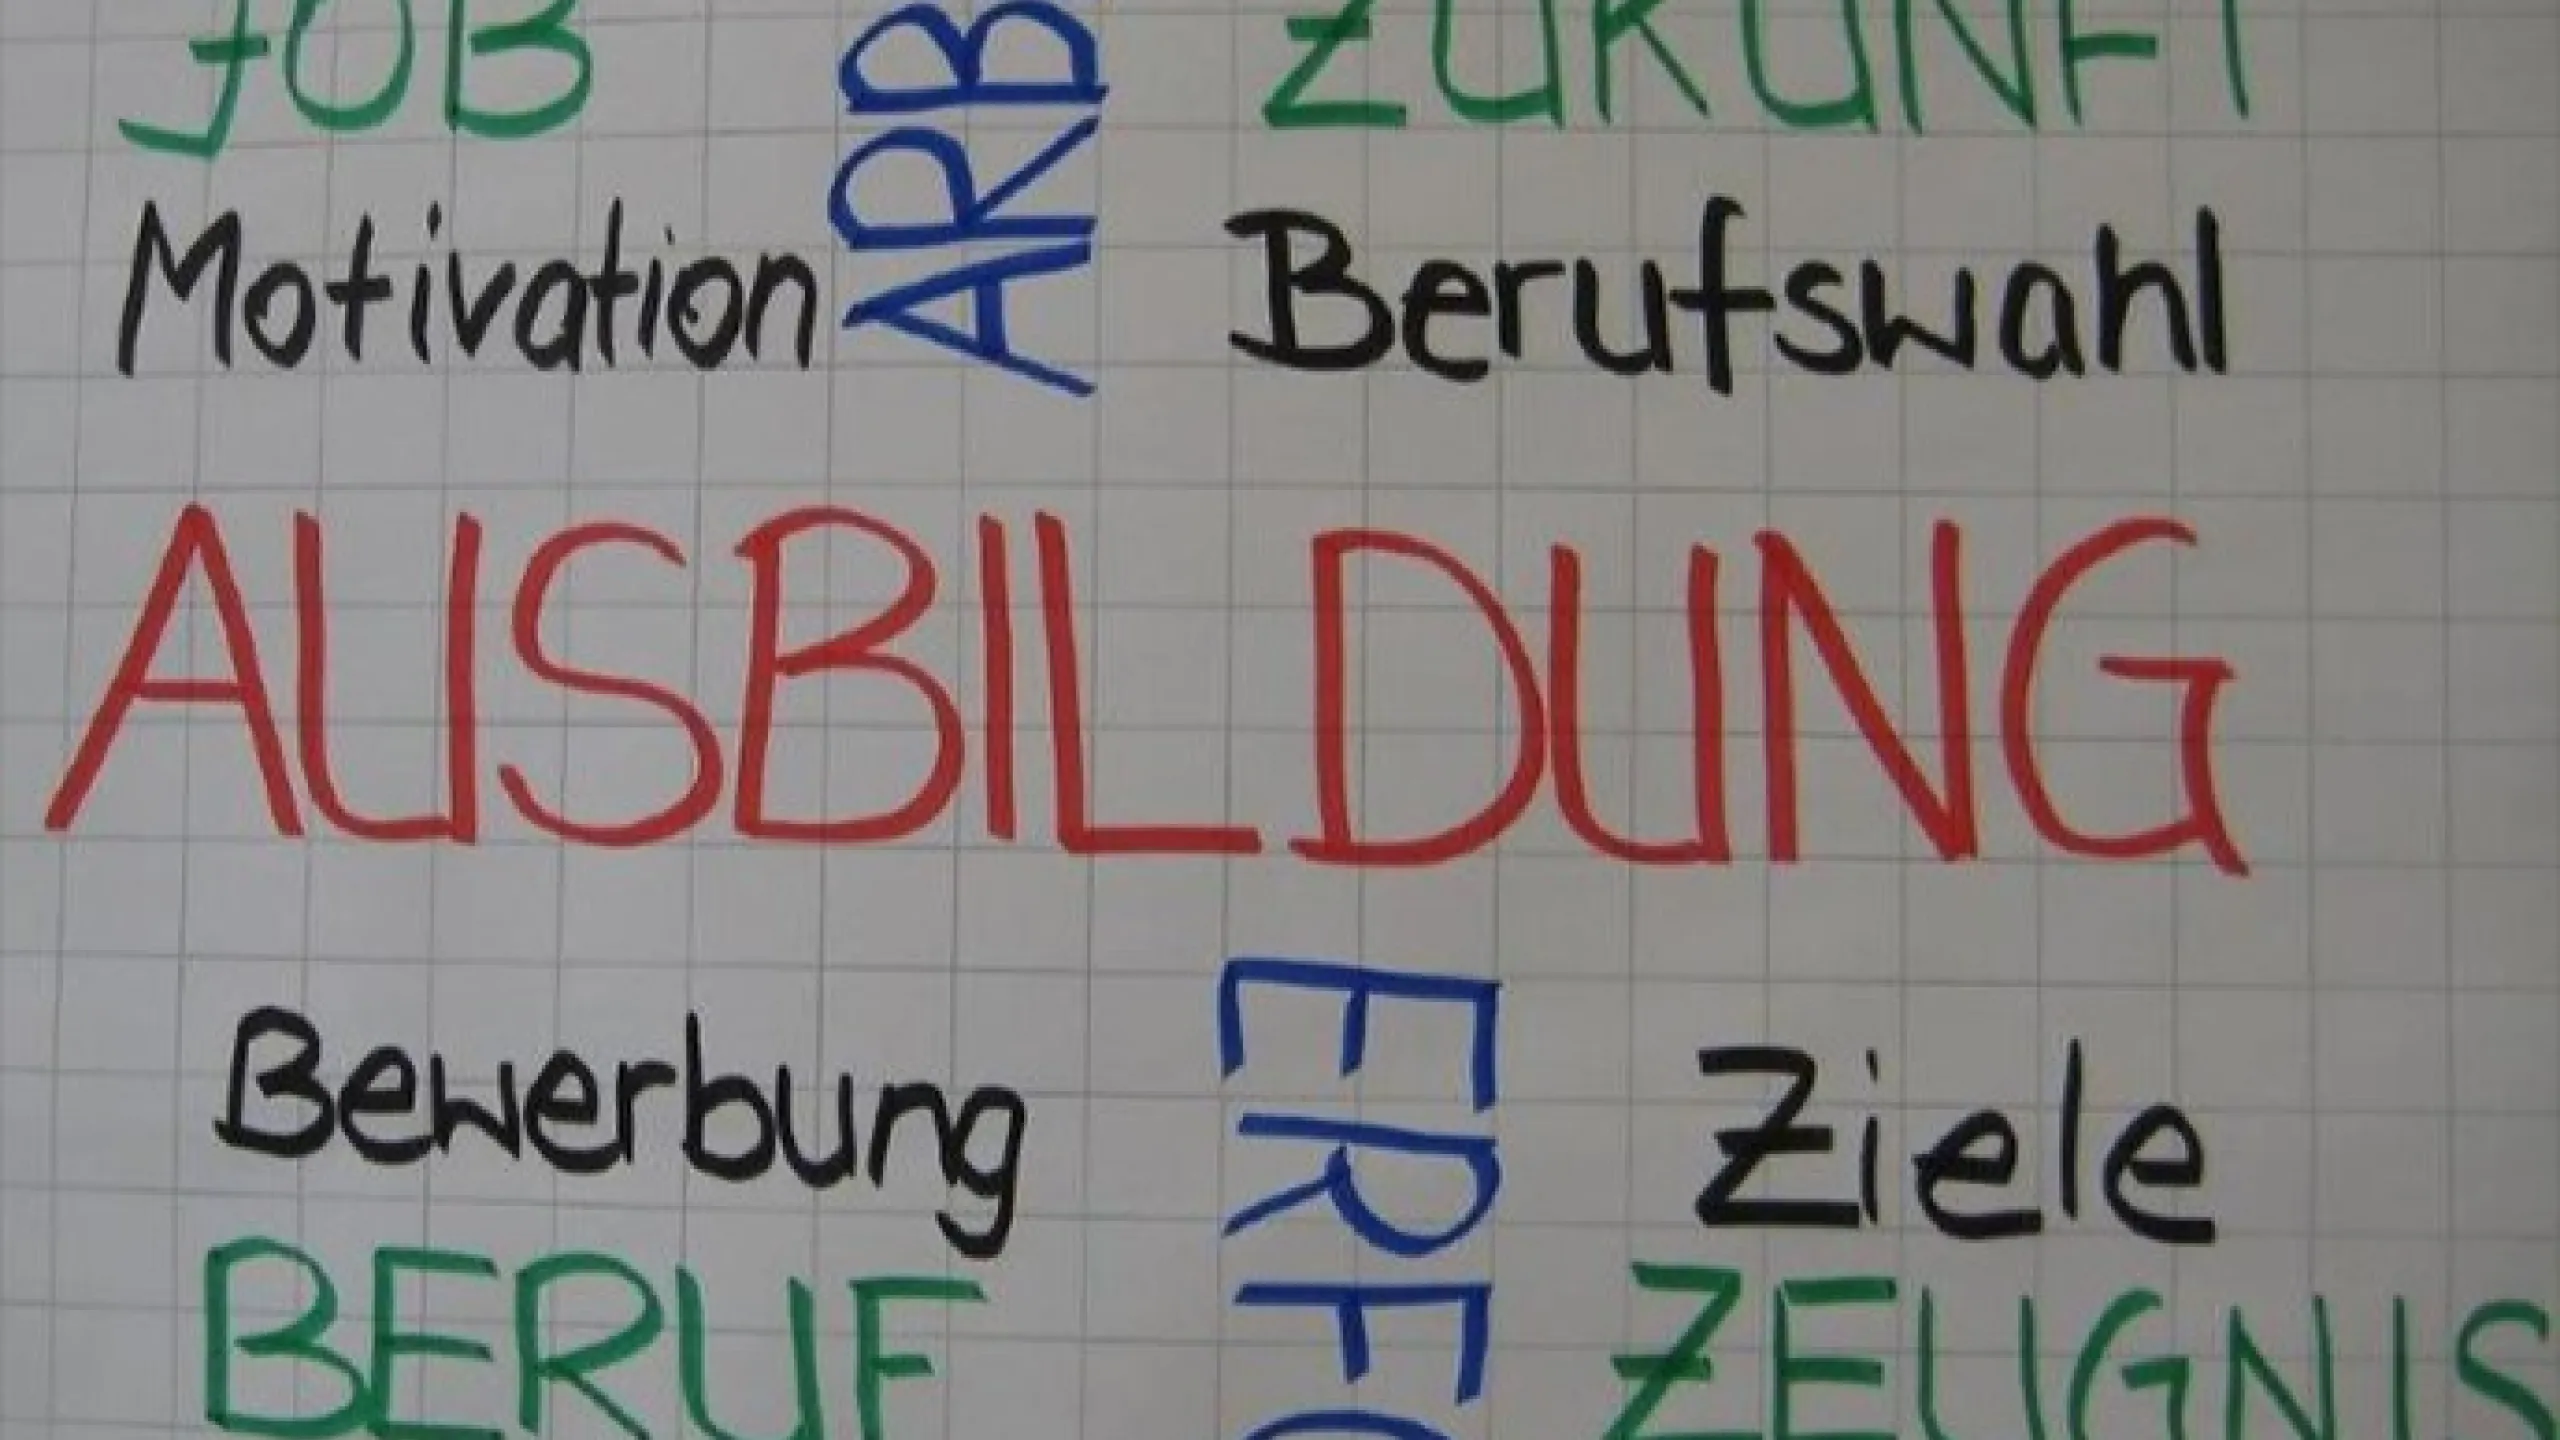 JOB
ZUKUNFT
ARB
Motivation
Berufswahl
AUSBILDUNG
Bewerbung
ERFO
Ziele
BERUF
ZEUGNIS